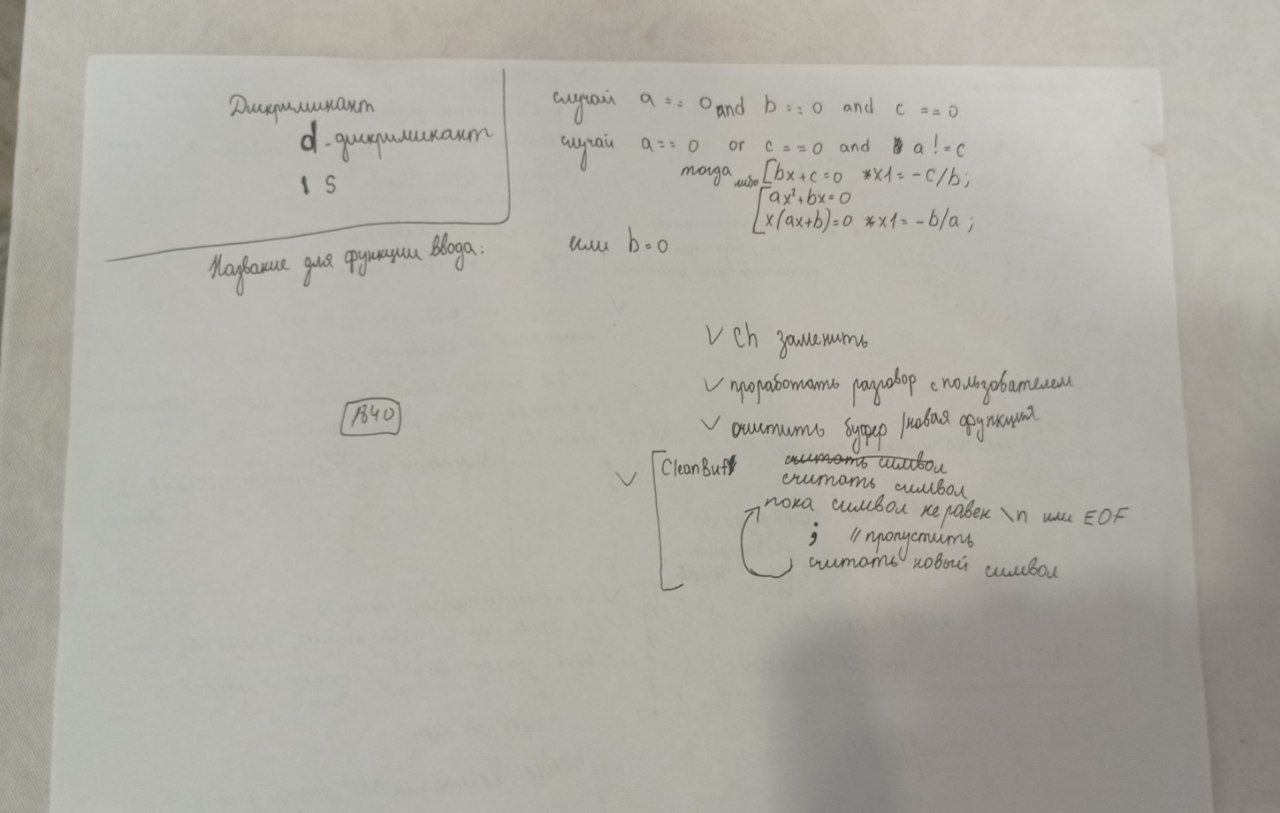 Дискриминант
d - дискриминант
1 S
Название для функции ввода:
1840
случай a == 0 and b == 0 and c == 0
случай a == 0 or c == 0 and a != c
тогда либо [bx + c = 0 *x1 = -c/b;
[ax²+bx=0
x(ax+b)=0 *x1 = -b/a;
если b=0
✓ ch заменить
✓ проработать разговор с пользователем
✓ очистить буфер /новая функция
✓ [CleanBuf считать символ
считать символ
пока символ неравен \n или EOF
; // пропустить
считать новый символ